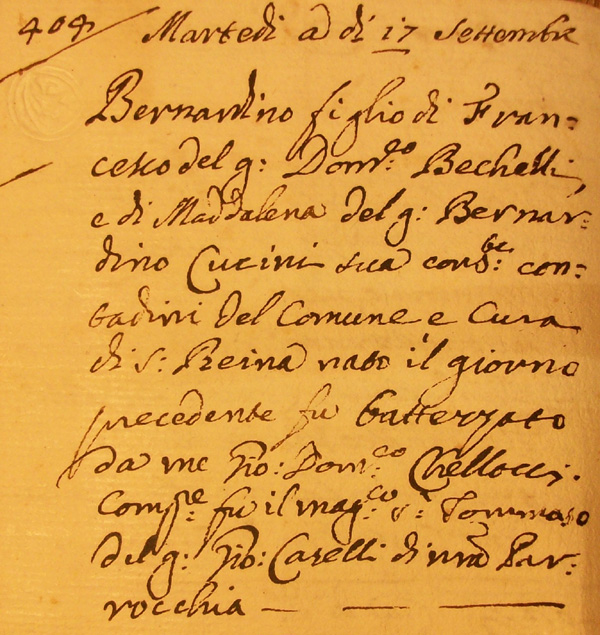 404 Martedi a di 17 Settembre
Bernardino figlio di Fran=
cesco del q: Dom:co Bechelli,
e di Maddalena del q: Bernar=
dino Cucini sua cons:te con=
tadini del Comune e Cura
di S: Reina nato il giorno
precedente fu battezzato
da me Gio: Dom:co Chellocci.
Comp:re fu il mag:co S:r Tommaso
del q: Gio: Caselli di nra Par=
rocchia